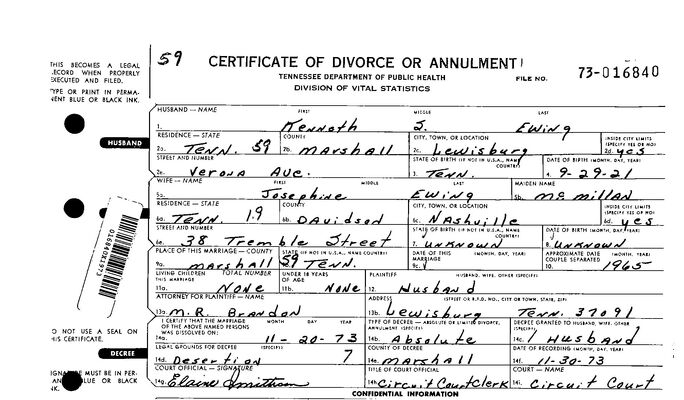 59 CERTIFICATE OF DIVORCE OR ANNULMENT
TENNESSEE DEPARTMENT OF PUBLIC HEALTH
DIVISION OF VITAL STATISTICS
FILE NO. 73-016840
THIS BECOMES A LEGAL
RECORD WHEN PROPERLY
EXECUTED AND FILED.
TYPE OR PRINT IN PERMA-
NENT BLUE OR BLACK INK.
HUSBAND
HUSBAND — NAME FIRST MIDDLE LAST
1. Kenneth J. Ewing
RESIDENCE — STATE COUNTY CITY, TOWN, OR LOCATION INSIDE CITY LIMITS (SPECIFY YES OR NO)
2a. Tenn. 59 2b. Marshall 2c. Lewisburg 2d. yes
STREET AND NUMBER STATE OF BIRTH (IF NOT IN U.S.A., NAME COUNTRY) DATE OF BIRTH (MONTH, DAY, YEAR)
2e. Verona Ave. 3. Tenn. 4. 9-29-21
WIFE — NAME FIRST MIDDLE LAST MAIDEN NAME
5a. Josephine Ewing 5b. McMillan
RESIDENCE — STATE COUNTY CITY, TOWN, OR LOCATION INSIDE CITY LIMITS (SPECIFY YES OR NO)
6a. Tenn. 19 6b. Davidson 6c. Nashville 6d. yes
STREET AND NUMBER STATE OF BIRTH (IF NOT IN U.S.A., NAME COUNTRY) DATE OF BIRTH (MONTH, DAY, YEAR)
6e. 38 Tremble Street 7. Unknown 8. Unknown
PLACE OF THIS MARRIAGE — COUNTY STATE (IF NOT IN U.S.A., NAME COUNTRY) DATE OF THIS MARRIAGE (MONTH, DAY, YEAR) APPROXIMATE DATE COUPLE SEPARATED (MONTH, YEAR)
9a. Marshall 59 Tenn. 9c. 10. 1965
LIVING CHILDREN TOTAL NUMBER THIS MARRIAGE UNDER 18 YEARS OF AGE PLAINTIFF HUSBAND, WIFE, OTHER (SPECIFY)
11a. None 11b. None 12. Husband
ATTORNEY FOR PLAINTIFF — NAME ADDRESS (STREET OR R.F.D. NO., CITY OR TOWN, STATE, ZIP)
13a. M.R. Brandon 13b. Lewisburg Tenn. 37091
I CERTIFY THAT THE MARRIAGE OF THE ABOVE NAMED PERSONS WAS DISSOLVED ON: MONTH DAY YEAR TYPE OF DECREE — ABSOLUTE OR LIMITED DIVORCE, ANNULMENT (SPECIFY) DECREE GRANTED TO HUSBAND, WIFE, OTHER (SPECIFY)
14a. 11-20-73 14b. Absolute 14c. 1 Husband
DO NOT USE A SEAL ON
THIS CERTIFICATE.
DECREE
LEGAL GROUNDS FOR DECREE (SPECIFY) COUNTY OF DECREE DATE OF RECORDING (MONTH, DAY, YEAR)
14d. Desertion 7 14e. Marshall 14f. 11-30-73
COURT OFFICIAL — SIGNATURE TITLE OF COURT OFFICIAL COURT
14g. Elaine Smithson 14h. Circuit Court Clerk 14i. Circuit Court
SIGNATURE MUST BE IN PER-
MANENT BLUE OR BLACK
INK.
CONFIDENTIAL INFORMATION
016840X1973